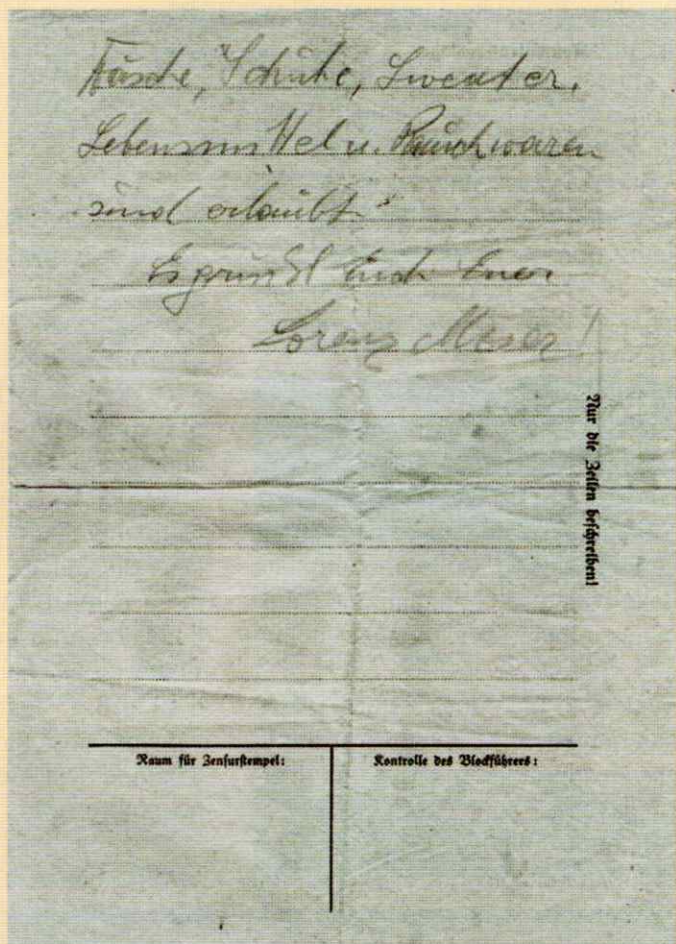 Wäsche, Schuhe, Sweater,
Lebensmittel u. Rauchwaren
sind erlaubt.
Es grüßt Euch Euer
Lorenz
Nur die Zeilen beschreiben!
Raum für Zensurstempel:
Kontrolle des Blockführers: